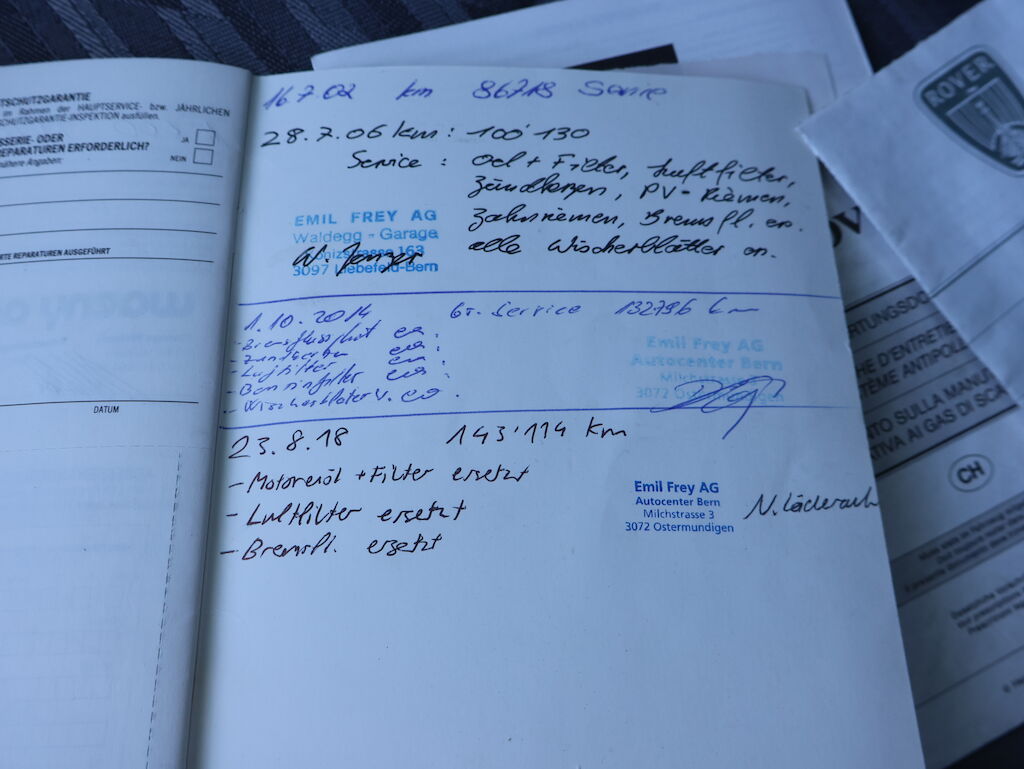 TSCHUTZGARANTIE
im Rahmen der HAUPTSERVICE- bzw. JÄHRLICHEN
SCHUTZGARANTIE-INSPEKTION ausfüllen.
SSERIE- ODER
EPARATUREN ERFORDERLICH?
nähere Angaben:
JA
NEIN
RTE REPARATUREN AUSGEFÜHRT
DATUM
16.7.02 km 86718 Service
28.7.06 km: 100'130
Service : Oel + Filter, Luftfilter,
Zündkerzen, PV-Riemen,
Zahnriemen, Bremsfl. er.
alle Wischerblätter er.
EMIL FREY AG
Waldegg - Garage
163
3097 Liebefeld-Bern
1.10.2014 Gr. Service 132796 km
- Bremsflüssigkeit er.
- Zündkerzen er.
- Luftfilter er.
- Benzinfilter er.
- Wischerblätter v. er.
Emil Frey AG
Autocenter Bern
3072 Ostermundigen
23.8.18 143'114 km
- Motorenöl + Filter ersetzt
- Luftfilter ersetzt
- Bremsfl. ersetzt
Emil Frey AG
Autocenter Bern
Milchstrasse 3
3072 Ostermundigen
N. Läderach
ROVER
ARTUNGSDO
HE D'ENTRETIE
TÈME ANTIPOLL
TO SULLA MANU
ATIVA AI GAS DI SCA
CH